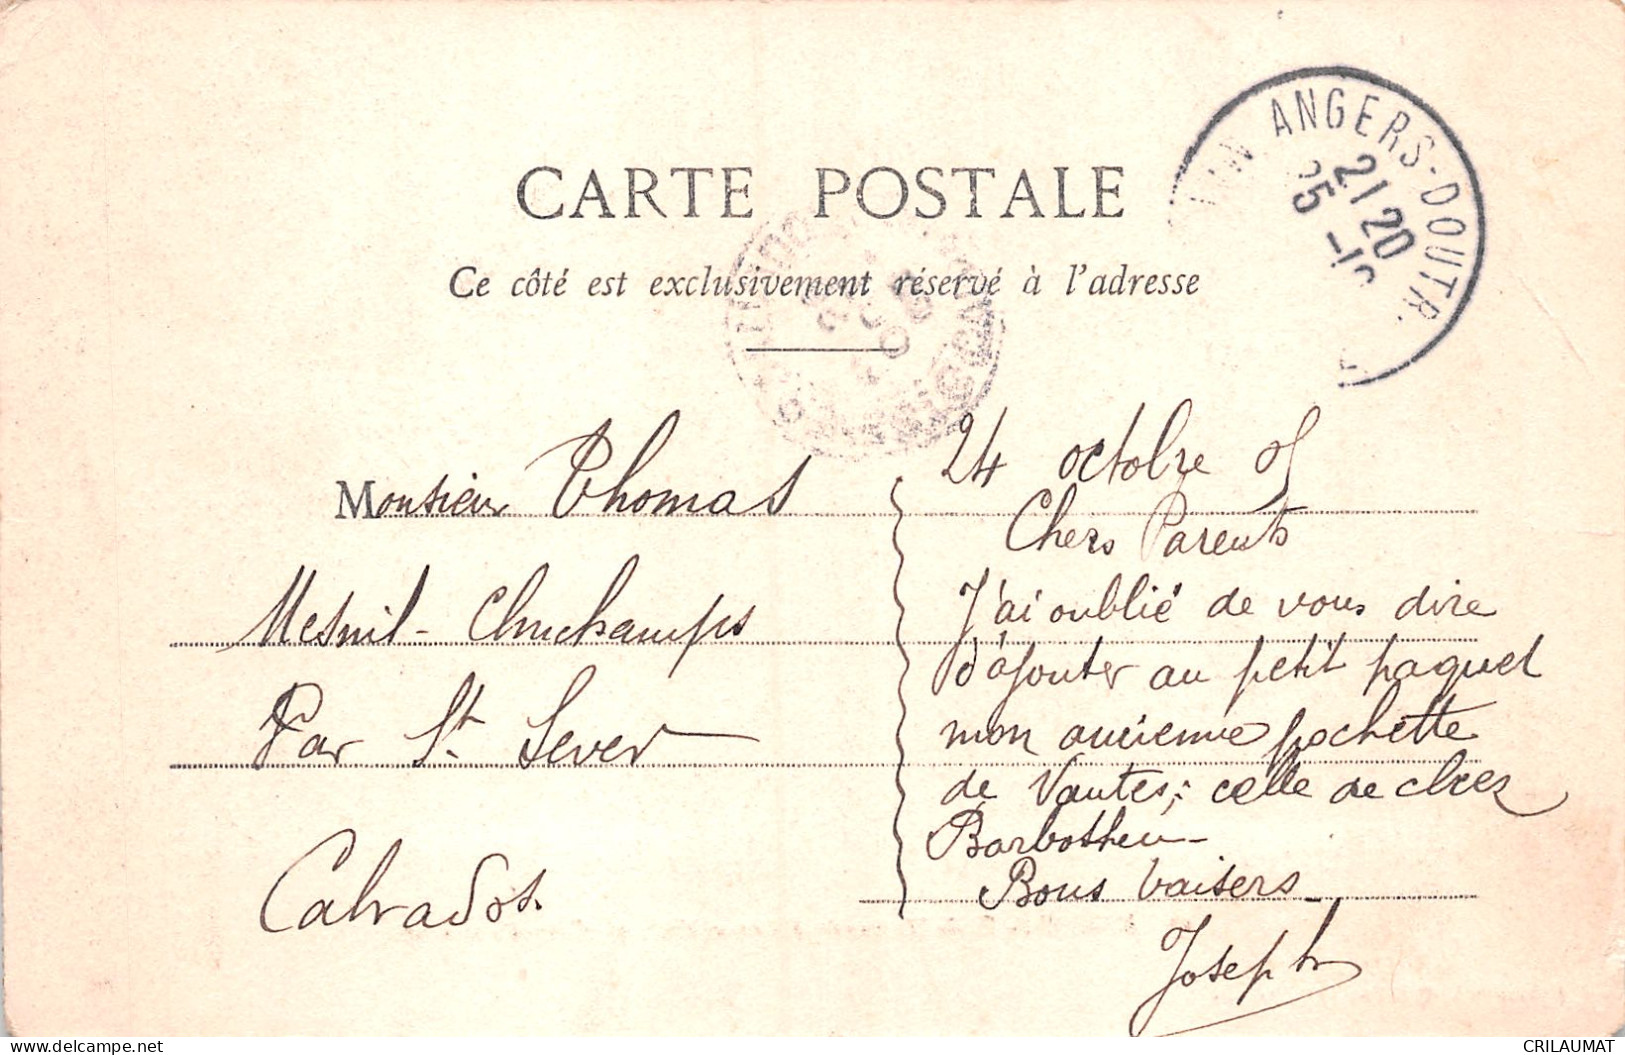 CARTE POSTALE
Ce côté est exclusivement réservé à l'adresse
ANGERS-DOUTR.
21 20
25 -10
Monsieur Thomas
Mesnil-Clinchamps
Par St. Sever
Calvados.
24 octobre 05
Chers Parents
J'ai oublié de vous dire
d'ajouter au petit paquet
mon ancienne pochette
de Nantes; celle de chez
Bons baisers
Joseph
CRILAUMAT